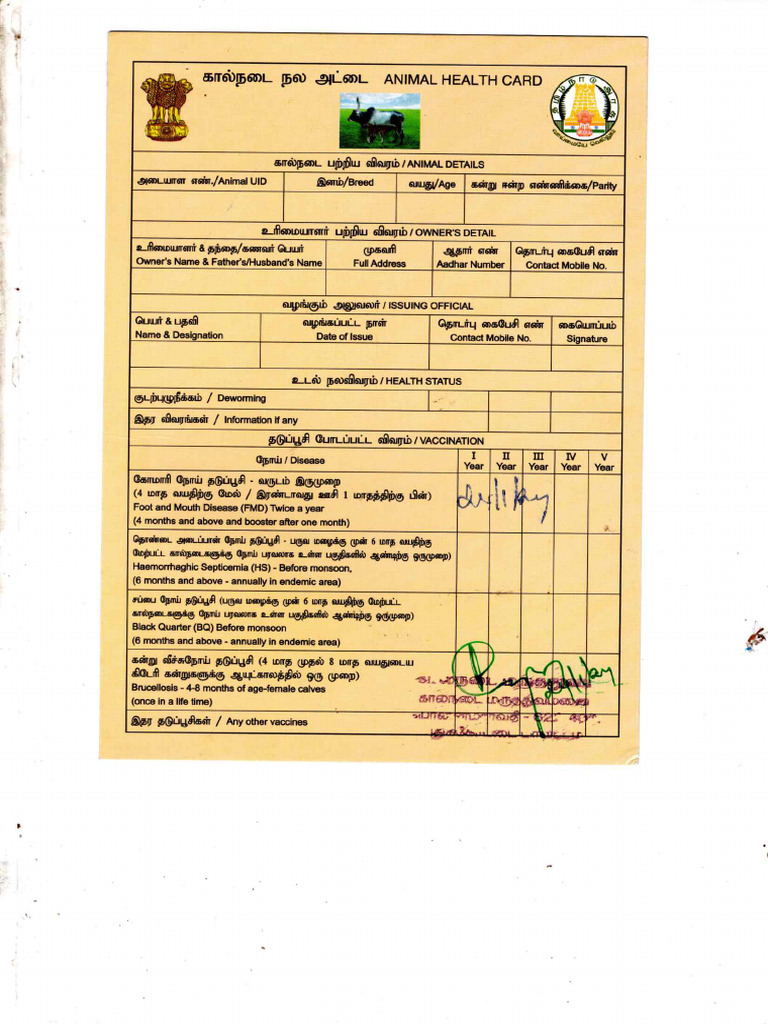 கால்நடை நல அட்டை ANIMAL HEALTH CARD
தமிழ்நாடு அரசு
வாய்மையே வெல்லும்
கால்நடை பற்றிய விவரம் / ANIMAL DETAILS
அடையாள எண்./Animal UID இனம்/Breed வயது/Age கன்று ஈன்ற எண்ணிக்கை/Parity
உரிமையாளர் பற்றிய விவரம் / OWNER'S DETAIL
உரிமையாளர் & தந்தை/கணவர் பெயர் முகவரி ஆதார் எண் தொடர்பு கைபேசி எண்
Owner's Name & Father's/Husband's Name Full Address Aadhar Number Contact Mobile No.
வழங்கும் அலுவலர் / ISSUING OFFICIAL
பெயர் & பதவி வழங்கப்பட்ட நாள் தொடர்பு கைபேசி எண் கையொப்பம்
Name & Designation Date of Issue Contact Mobile No. Signature
உடல் நலவிவரம் / HEALTH STATUS
குடற்புழுநீக்கம் / Deworming
இதர விவரங்கள் / Information if any
தடுப்பூசி போடப்பட்ட விவரம் / VACCINATION
நோய் / Disease I II III IV V
Year Year Year Year Year
கோமாரி நோய் தடுப்பூசி - வருடம் இருமுறை
(4 மாத வயதிற்கு மேல் / இரண்டாவது ஊசி 1 மாதத்திற்கு பின்)
Foot and Mouth Disease (FMD) Twice a year
(4 months and above and booster after one month)
தொண்டை அடைப்பான் நோய் தடுப்பூசி - பருவ மழைக்கு முன் 6 மாத வயதிற்கு
மேற்பட்ட கால்நடைகளுக்கு நோய் பரவலாக உள்ள பகுதிகளில் ஆண்டிற்கு ஒருமுறை)
Haemorrhaghic Septicemia (HS) - Before monsoon,
(6 months and above - annually in endemic area)
சப்பை நோய் தடுப்பூசி (பருவ மழைக்கு முன் 6 மாத வயதிற்கு மேற்பட்ட
கால்நடைகளுக்கு நோய் பரவலாக உள்ள பகுதிகளில் ஆண்டிற்கு ஒருமுறை)
Black Quarter (BQ) Before monsoon
(6 months and above - annually in endemic area)
கன்று வீச்சுநோய் தடுப்பூசி (4 மாத முதல் 8 மாத வயதுடைய
கிடேரி கன்றுகளுக்கு ஆயுட்காலத்தில் ஒரு முறை)
Brucellosis - 4-8 months of age-female calves
(once in a life time)
கால்நடை மருத்துவமனை
இதர தடுப்பூசிகள் / Any other vaccines